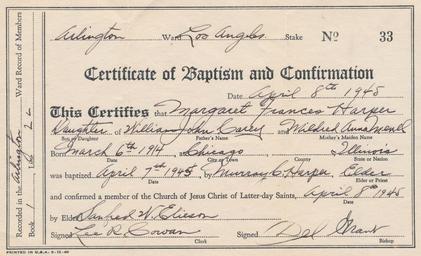 Arlington Ward Los Angeles Stake No 33
Certificate of Baptism and Confirmation
Date April 8th 1945
This Certifies that Margaret Frances Harper
Daughter of William John Carey and Mildred Anna
Son or Daughter Father's Name Mother's Maiden Name
Born March 6th 1914 at Chicago Illinois
Date City or Town County State or Nation
was baptized April 7th 1945 by Murray C. Harper, Elder
Date Elder or Priest
and confirmed a member of the Church of Jesus Christ of Latter-day Saints, April 8th 1945
Date
by Elder Sanford W. Elieson
Signed Lee R. Cowan Signed Del Grant
Clerk Bishop
PRINTED IN U.S.A.
Recorded in the Arlington Ward Record of Members
Book 1